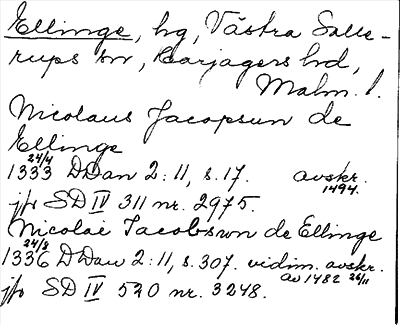 Ellinge, hg, Västra Salle-
rups sn, Harjagers hd,
Malm. l.
Nicolaus Jacopsun de
Ellinge
1333 24/4 DDan 2:11, s. 17. avskr.
1494.
jfr SD IV 311 nr. 2975.
Nicolai Jacobson de Ellinge
1336 24/8 DDan 2:11, s. 307. vidim. avskr.
av 1482 26/11
jfr SD IV 520 nr. 3248.